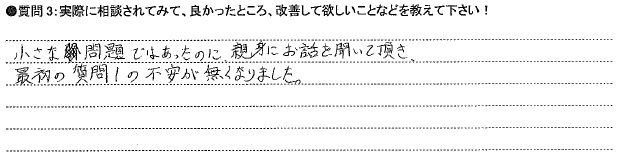 ●質問3:実際に相談されてみて、良かったところ、改善して欲しいことなどを教えて下さい!
小さな問題ではあったのに、親身にお話を聞いて頂き、
最初の質問1の不安が無くなりました。